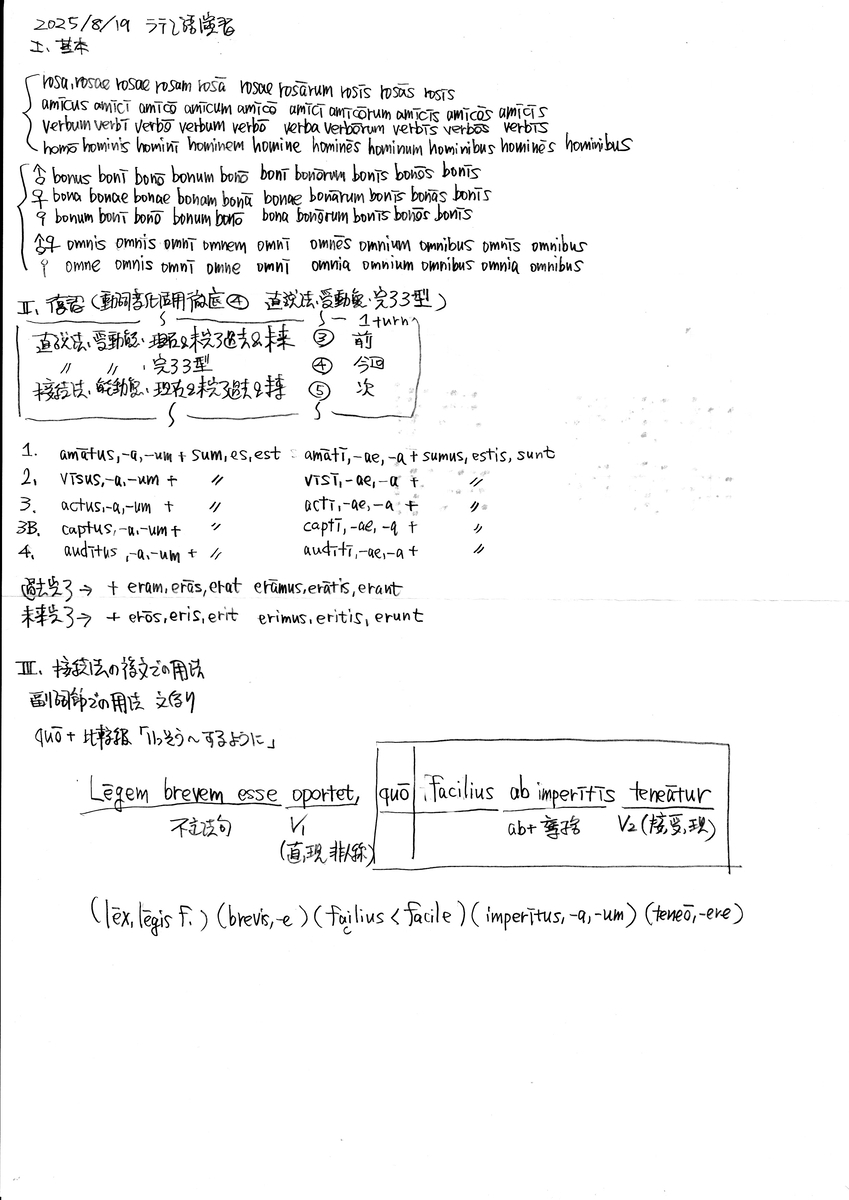 2025/8/19 ラテン語演習
I、基本
rosa, rosae rosae rosam rosā rosae rosārum rosīs rosās rosīs
amīcus amīcī amīcō amīcum amīcō amīcī amīcōrum amīcīs amīcōs amīcīs
verbum verbī verbō verbum verbō verba verbōrum verbīs verbōs verbīs
homō hominis hominī hominem homine hominēs hominum hominibus hominēs hominibus
♂ bonus bonī bonō bonum bonō bonī bonōrum bonīs bonōs bonīs
♀ bona bonae bonae bonam bonā bonae bonārum bonīs bonās bonīs
bonum bonī bonō bonum bonō bona bonōrum bonīs bonōs bonīs
♂♀ omnis omnis omnī omnem omnī omnēs omnium omnibus omnīs omnibus
omne omnis omnī omne omnī omnia omnium omnibus omnia omnibus
II、復習(動詞変化活用徹底④ 直説法、受動態、完了3型)
1turn
直説法、受動態、現在&未完了過去&未来 ③ 前
〃 〃 、完了3型 ④ 今回
接続法、能動態、現在&未完了過去&未来 ⑤ 次
1. amātus,-a,-um + sum,es,est amātī,-ae,-a + sumus,estis,sunt
2, vīsus,-a,-um + 〃 vīsī,-ae,-a + 〃
3. actus,-a,-um + 〃 actī,-ae,-a + 〃
3B. captus,-a,-um + 〃 captī,-ae,-a + 〃
4. audītus,-a,-um + 〃 audītī,-ae,-a + 〃
過去完了→ + eram,erās,erat erāmus,erātis,erant
未来完了→ + erōs,eris,erit erimus,eritis,erunt
III、接続法の複文での用法
副詞節での用法 文例り
quō + 比較級「いっそう〜するように」
Lēgem brevem esse oportet, quō facilius ab imperītīs teneātur
不定法句 V1 ab+奪格 V2(接,受,現)
(直,現,非人称)
(lēx, lēgis f.) (brevis,-e) (facilius < facile) (imperītus,-a,-um) (teneō,-ere)